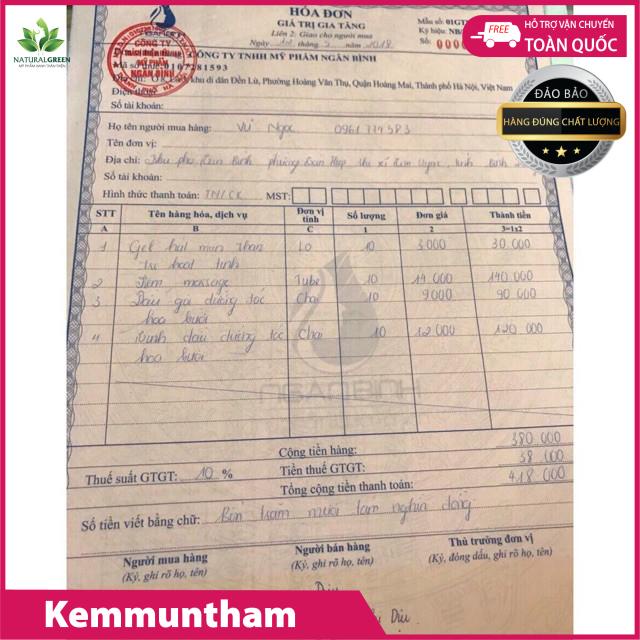 NATURALGREEN
HÓA ĐƠN
GIÁ TRỊ GIA TĂNG
Liên 2: Giao cho người mua
Ngày tháng 5 năm 2018
Mẫu số: 01GT
Ký hiệu: NB/
Số: 0000
FREE
HỖ TRỢ VẬN CHUYỂN
TOÀN QUỐC
ĐẢO BẢO
HÀNG ĐÚNG CHẤT LƯỢNG
CÔNG TY
NGÂN BÌNH
CÔNG TY TNHH MỸ PHẨM NGÂN BÌNH
Mã số thuế: 0107281593
khu di dân Đền Lừ, Phường Hoàng Văn Thụ, Quận Hoàng Mai, Thành phố Hà Nội, Việt Nam
Điện thoại:
Số tài khoản:
Họ tên người mua hàng: Vũ Ngọc 0961774583
Tên đơn vị:
Địa chỉ: Khu phố phường thị xã tỉnh Bình
Số tài khoản:
Hình thức thanh toán: TM/CK MST:
STT Tên hàng hóa, dịch vụ Đơn vị tính Số lượng Đơn giá Thành tiền
A B C 1 2 3=1x2
1 Gel hút mụn than Lọ 10 3000 30.000
hoạt tính
2 massage Tube 10 14.000 140.000
3 Dầu gội dưỡng tóc Chai 10 9000 90 000
hoa bưởi
4 Tinh dầu dưỡng tóc Chai 10 12 000 120 000
hoa bưởi
NGANBINH
Cộng tiền hàng: 380 000
Thuế suất GTGT: 10 % Tiền thuế GTGT: 38 000
Tổng cộng tiền thanh toán: 418 000
Số tiền viết bằng chữ: Bốn trăm mười tám nghìn đồng
Người mua hàng Người bán hàng Thủ trưởng đơn vị
(Ký, ghi rõ họ, tên) (Ký, ghi rõ họ, tên) (Ký, đóng dấu, ghi rõ họ, tên)
Dịu
Dịu
Kemmuntham